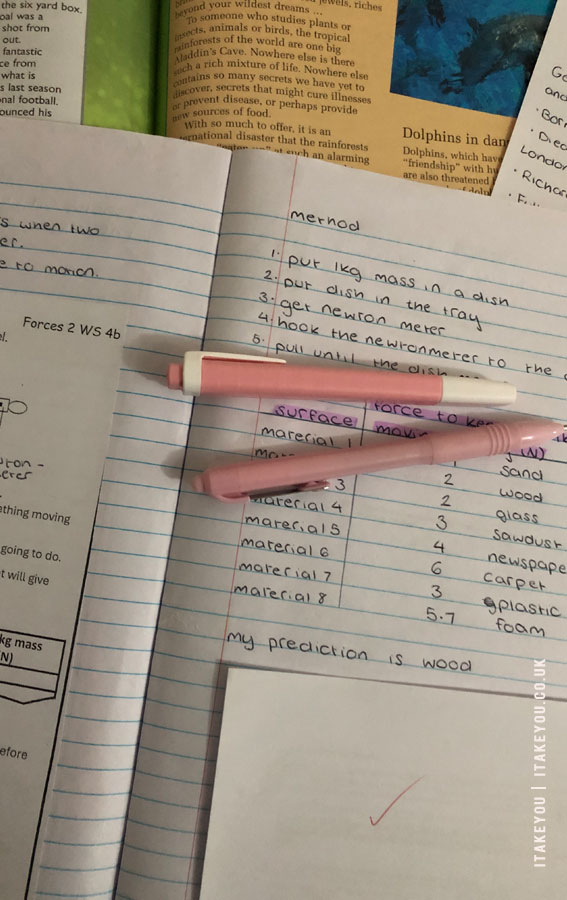 the six yard box.
oal was a
shot from
out.
fantastic
ce from
what is
s last season
nal football.
ounced his
jewels, riches
beyond your wildest dreams ...
To someone who studies plants or
insects, animals or birds, the tropical
rainforests of the world are one big
Aladdin's Cave. Nowhere else is there
such a rich mixture of life. Nowhere else
contains so many secrets we have yet to
discover, secrets that might cure illnesses
or prevent disease, or perhaps provide
new sources of food.
With so much to offer, it is an
ernational disaster that the rainforests
at such an alarming
Dolphins in dan
Dolphins, which have
"friendship" with hu
are also threatened
of dolp
Go
and
· Born
· Died
London
· Richar
s when two
er.
e to motion.
Forces 2 WS 4b
el.
uron -
erer
ething moving
going to do.
t will give
kg mass
N)
efore
method
1. put 1kg mass in a dish
2. put dish in the tray
3. get newton meter
4. hook the newtonmeter to the
5. pull until the dish
surface
force to kee
movin
(N)
material 1
1 sand
2 wood
3 2 glass
material 4 3 sawdust
material 5 4 newspape
material 6 6 carpet
material 7 3 plastic
material 8 5.7 foam
my prediction is wood
ITAKEYOU | ITAKEYOU.CO.UK